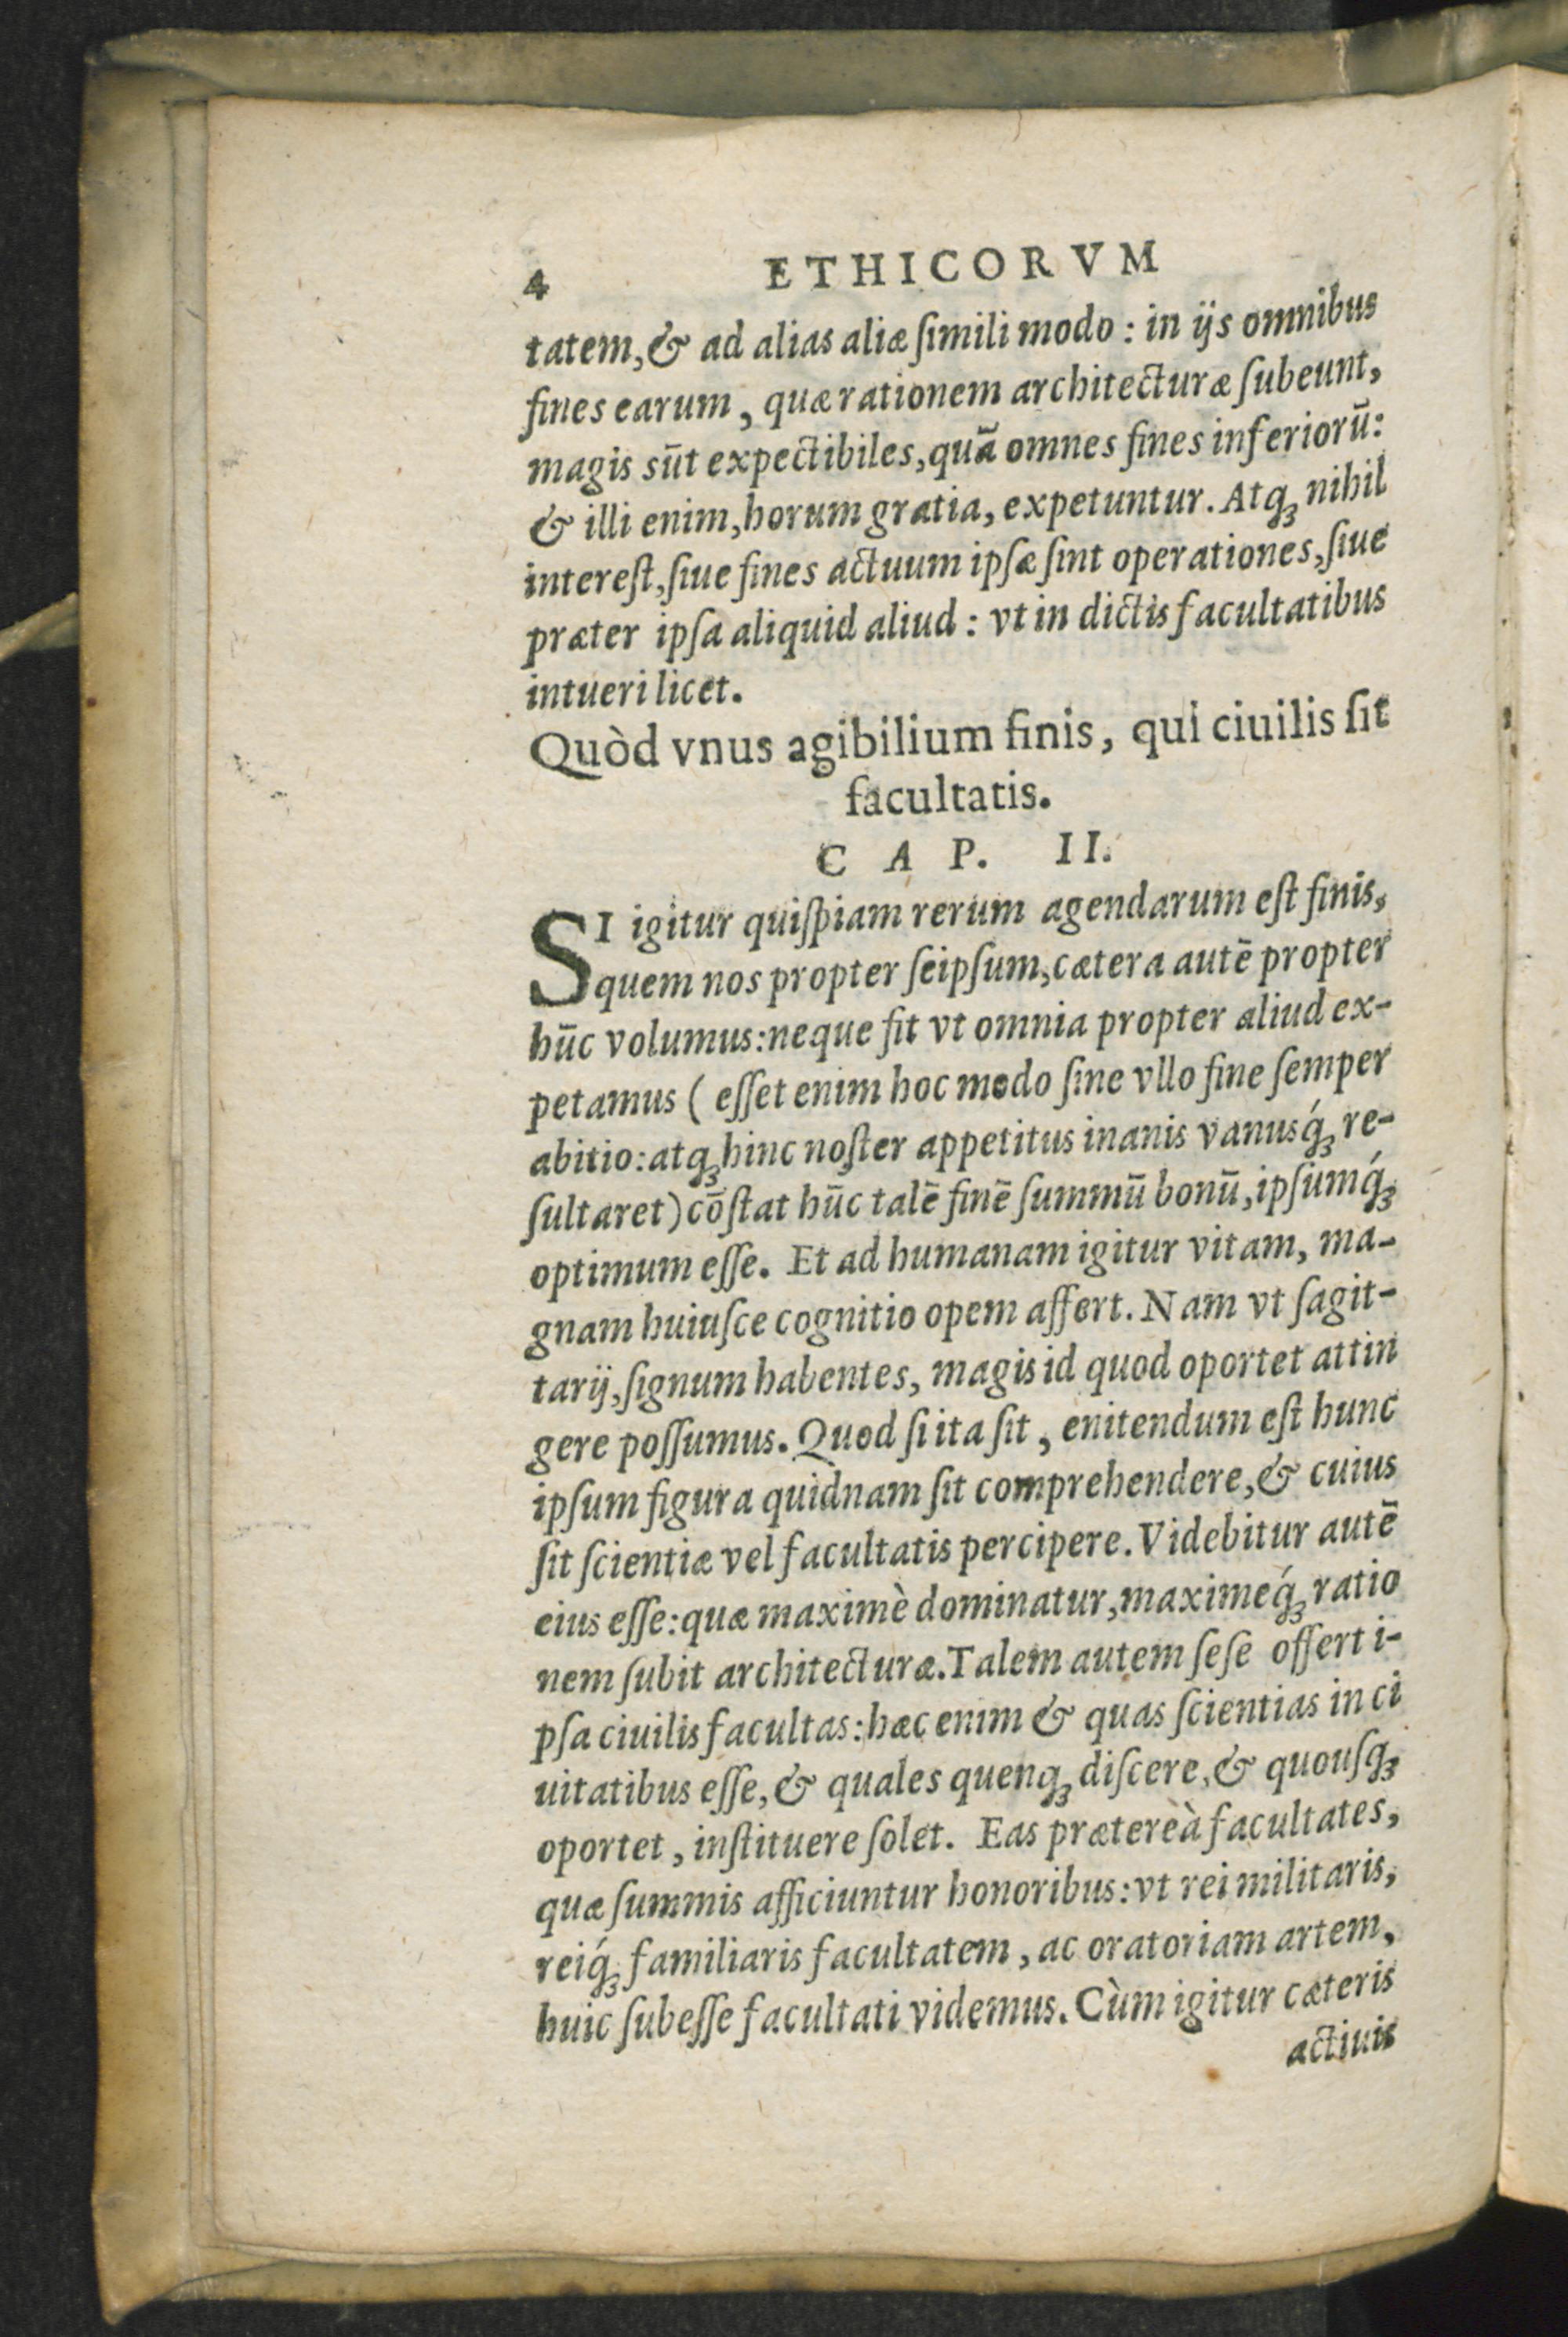 4 ETHICORVM
tatem, & ad alias aliæ ſimili modo : in ijs omnibus
fines earum, quæ rationem architecturæ ſubeunt,
magis sūt expectibiles, quā omnes fines inferiorū:
& illi enim, horum gratia, expetuntur. Atqꝫ nihil
intereſt, ſiue fines actuum ipſæ ſint operationes, ſiue
præter ipſa aliquid aliud : vt in dictis facultatibus
intueri licet.
Quòd vnus agibilium finis, qui ciuilis ſit
facultatis.
CAP. II.
SI igitur quiſpiam rerum agendarum eſt finis,
quem nos propter ſeipſum, cætera autē propter
hūc volumus: neque fit vt omnia propter aliud ex-
petamus ( eſſet enim hoc modo ſine vllo fine ſemper
abitio: atqꝫ hinc noſter appetitus inanis vanusq́ꝫ re-
ſultaret) cōſtat hūc talē finē ſummū bonū, ipſumq́ꝫ
optimum eſſe. Et ad humanam igitur vitam, ma-
gnam huiuſce cognitio opem affert. Nam vt ſagit-
tarij, ſignum habentes, magis id quod oportet attin
gere poſſumus. Quod ſi ita ſit, enitendum eſt hunc
ipſum figura quidnam ſit comprehendere, & cuius
ſit ſcientiæ vel facultatis percipere. Videbitur autē
eius eſſe: quæ maximè dominatur, maximeq́ꝫ ratio
nem ſubit architecturæ. Talem autem ſeſe offert i-
pſa ciuilis facultas: hæc enim & quas ſcientias in ci
uitatibus eſſe, & quales quenqꝫ diſcere, & quouſqꝫ
oportet, inſtituere ſolet. Eas prætereà facultates,
quæ ſummis afficiuntur honoribus: vt rei militaris,
reiq́ꝫ familiaris facultatem, ac oratoriam artem,
huic ſubeſſe facultati videmus. Cùm igitur cæteris
actiuis